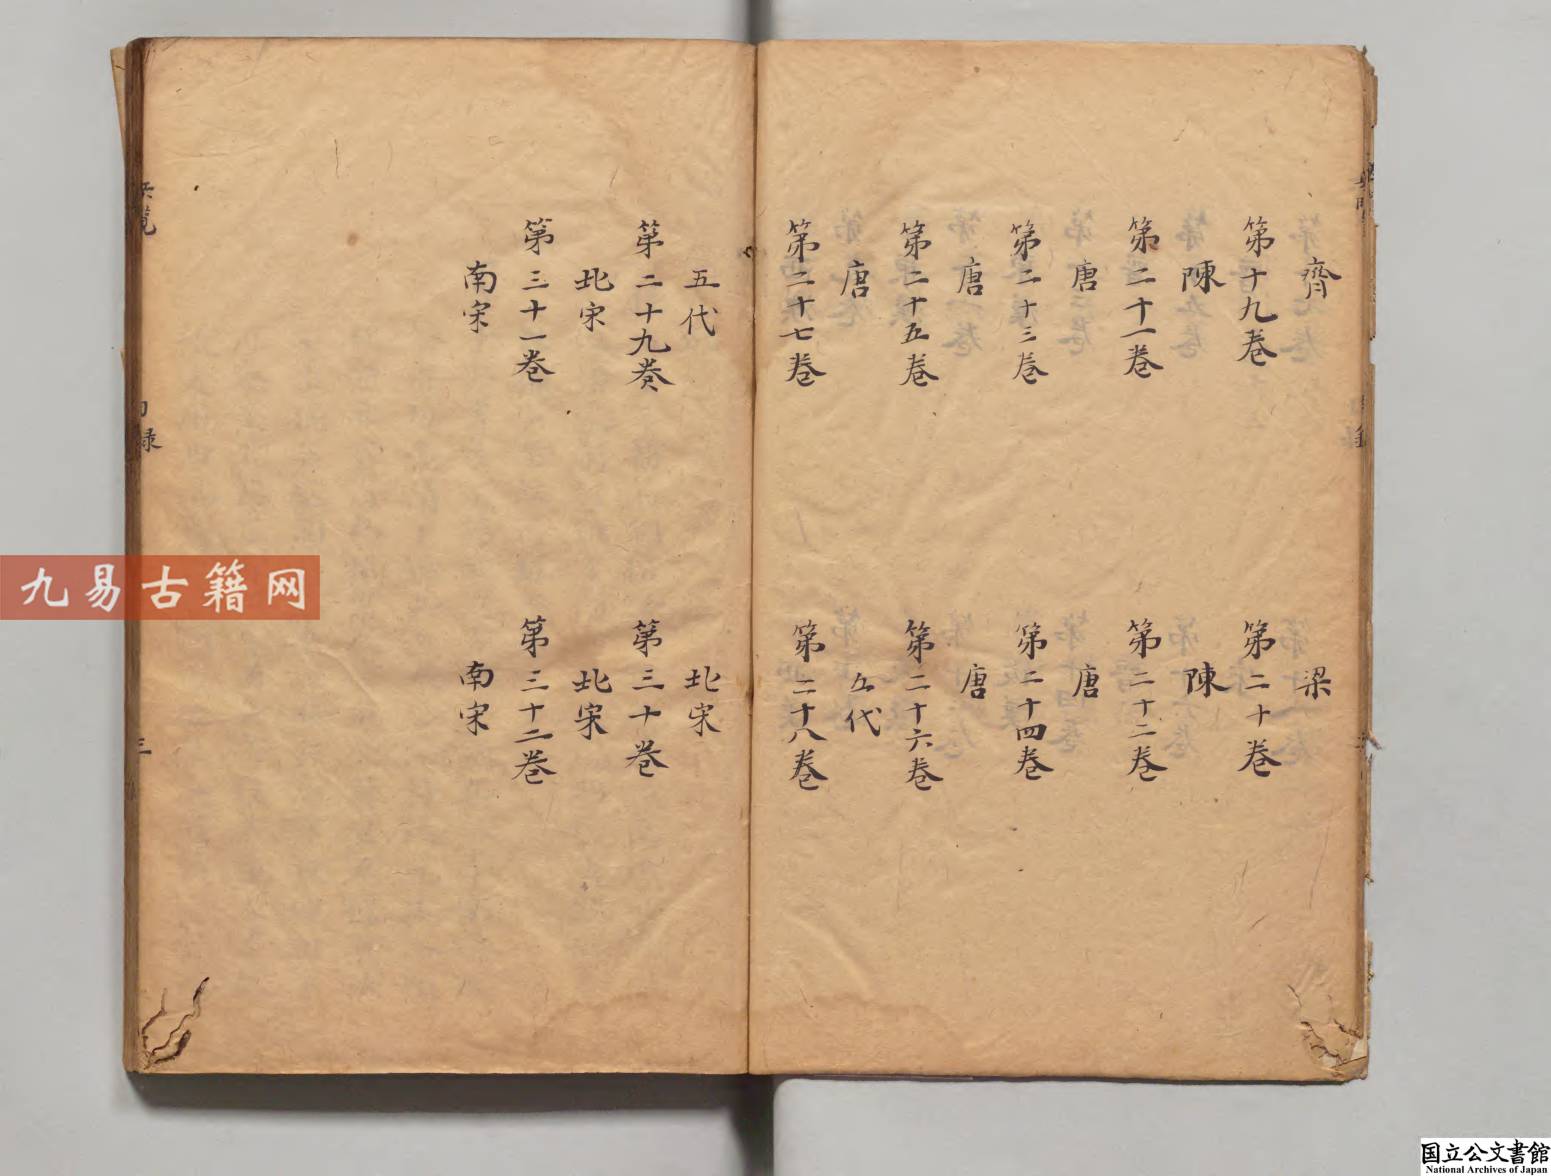 齊　梁
第十九卷　第二十卷
陳　陳
第二十一卷　第二十二卷
唐　唐
第二十三卷　第二十四卷
唐　唐
第二十五卷　第二十六卷
唐　五代
第二十七卷　第二十八卷
五代　北宋
第二十九卷　第三十卷
北宋　北宋
第三十一卷　第三十二卷
南宋　南宋
覽　目録　三
九易古籍网
国立公文書館
National Archives of Japan